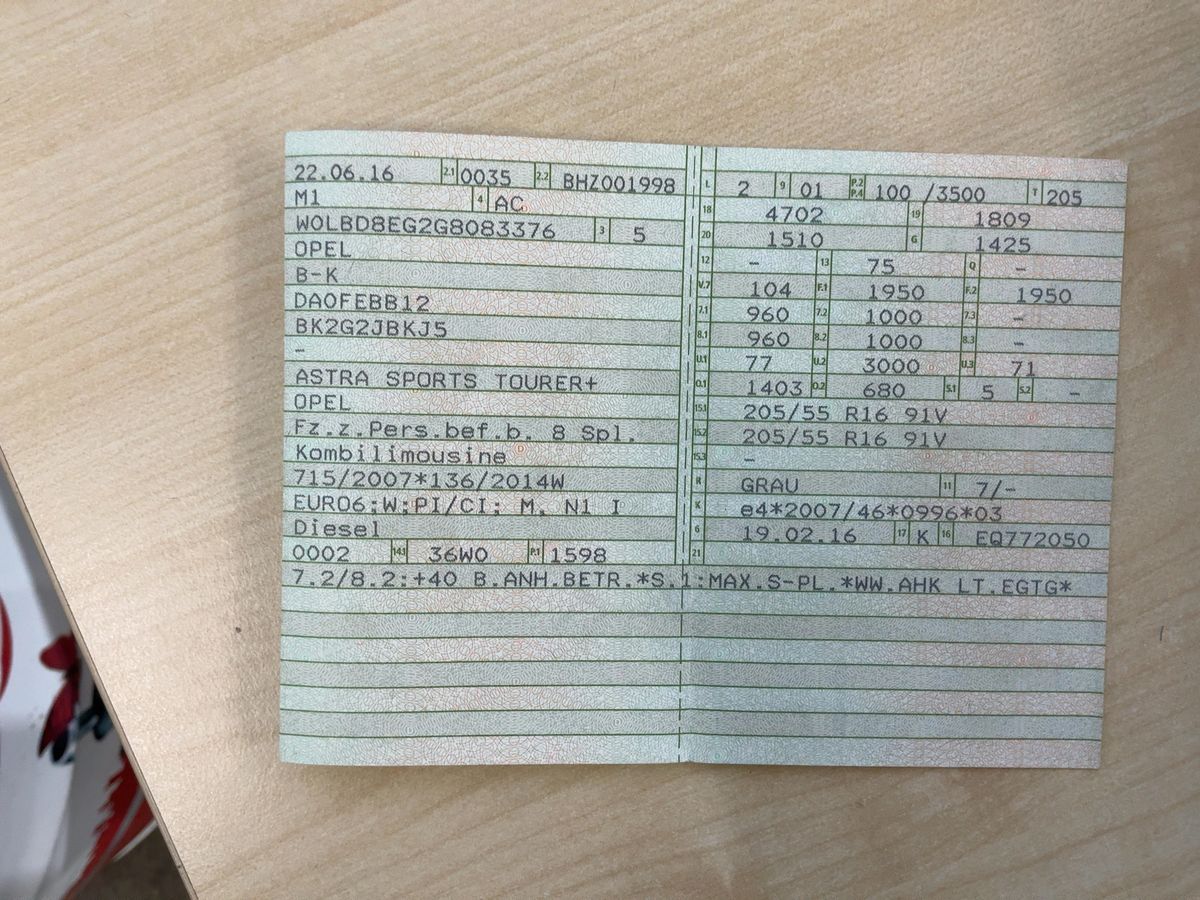 22.06.16 2.1 0035 2.2 BHZ001998
M1 4 AC
W0LBD8EG2G8083376 3 5
OPEL
B-K
DAOFEBB12
BK2G2JBKJ5
-
ASTRA SPORTS TOURER+
OPEL
Fz.z.Pers.bef.b. 8 Spl.
Kombilimousine
715/2007*136/2014W
EURO6;W;PI/CI; M, N1 I
Diesel
0002 14.1 36W0 P.1 1598
L 2 9 01 P.2 P.4 100 /3500 T 205
18 4702 19 1809
20 1510 G 1425
12 - 13 75 Q -
V.7 104 F.1 1950 F.2 1950
7.1 960 7.2 1000 7.3 -
8.1 960 8.2 1000 8.3 -
U.1 77 U.2 3000 U.3 71
O.1 1403 O.2 680 S.1 5 S.2 -
15.1 205/55 R16 91V
15.2 205/55 R16 91V
15.3 -
R GRAU 11 7/-
K e4*2007/46*0996*03
6 19.02.16 17 K 16 EQ772050
21
7.2/8.2:+40 B.ANH.BETR.*S.1:MAX.S-PL.*WW.AHK LT.EGTG*